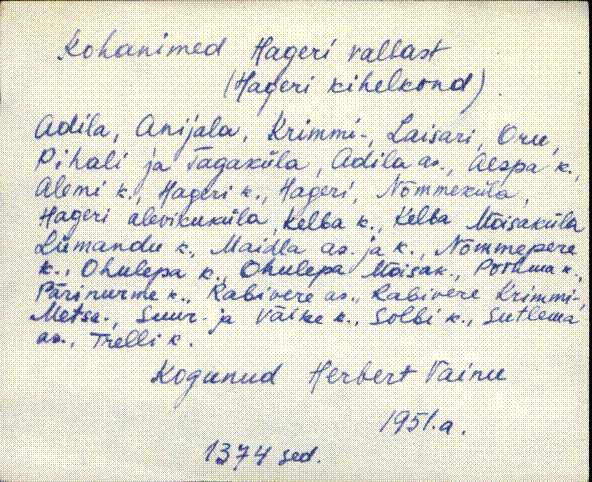 Kohanimed Hageri vallast
(Hageri kihelkond)
Adila, Anijala, Krimmi-, Laisari, Oru,
Pihali ja Tagaküla, Adila as., Aespa k.,
Alemi k., Hageri k., Hageri, Nõmmeküla,
Hageri alevikuküla, Kelba k., Kelba Mõisaküla
Lümandu k., Maidla as. ja k., Nõmmepere
k., Ohulepa k., Ohulepa Mõisak., Põikma k.,
Pärinurme k., Rabivere as., Rabivere Krimmi-,
Metsa-, Suur- ja Väike k., Solbi k., Sutlema
as., Trelli k.
Kogunud Herbert Tainu
1951.a.
1374 sed.